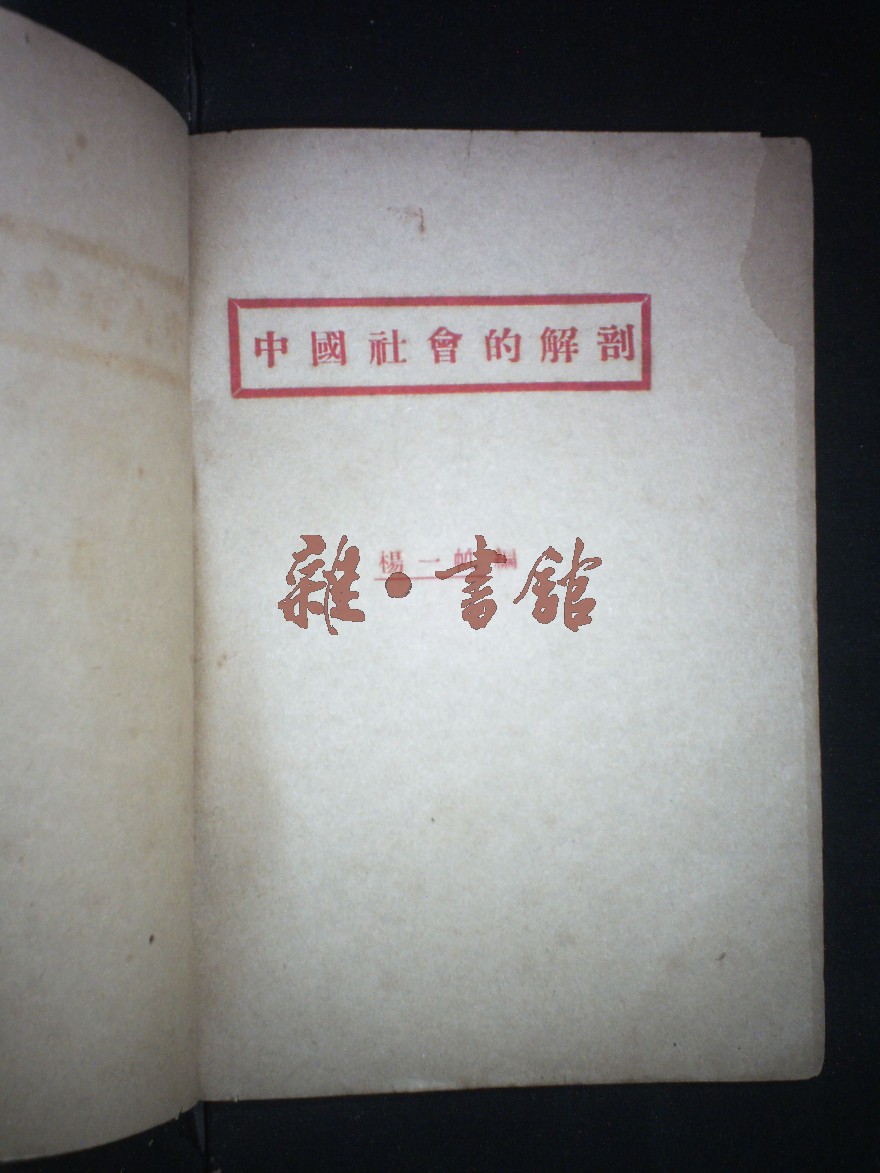 中國社會的解剖
楊一帆編
雜·書館